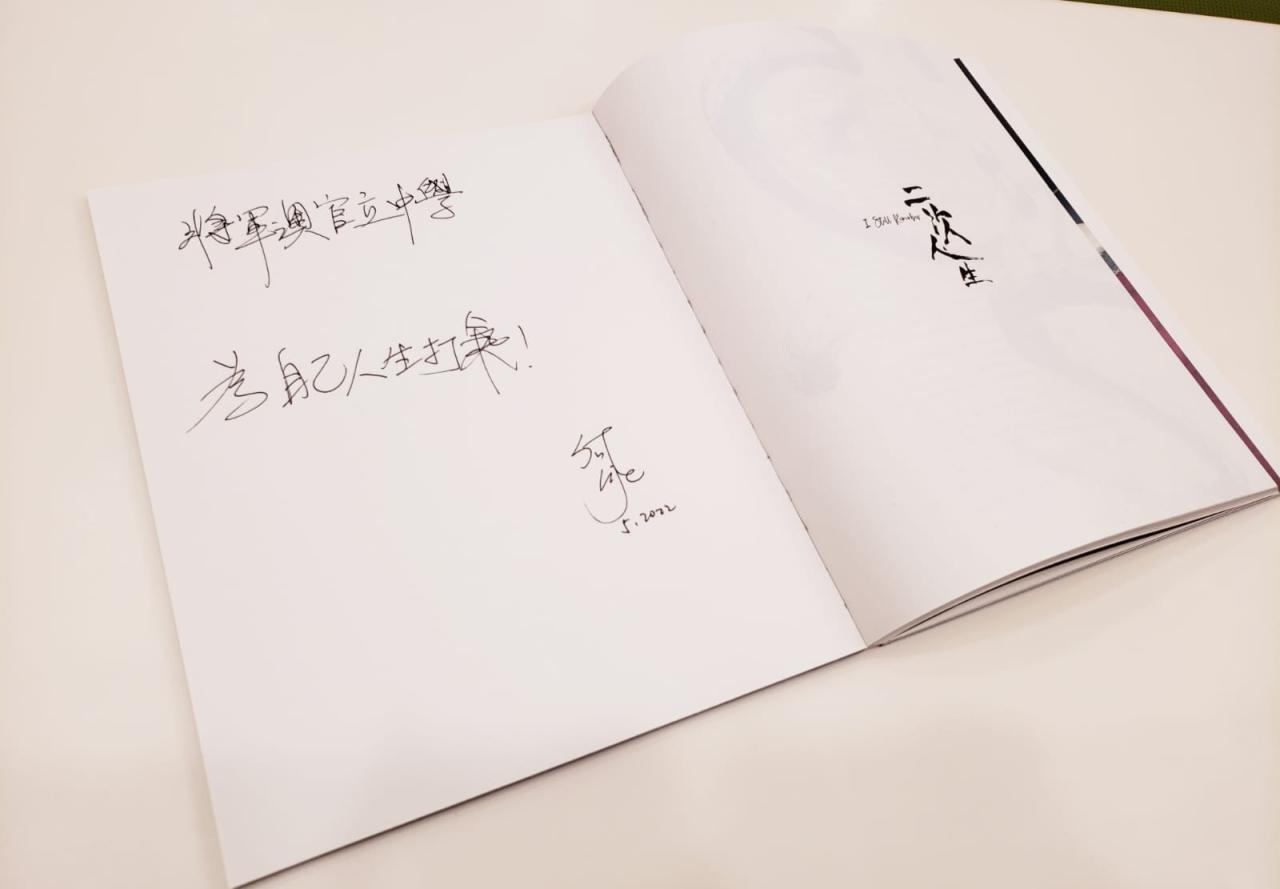 將軍澳官立中學
為自己人生打氣!
5.2022
I Still Remember
二次人生